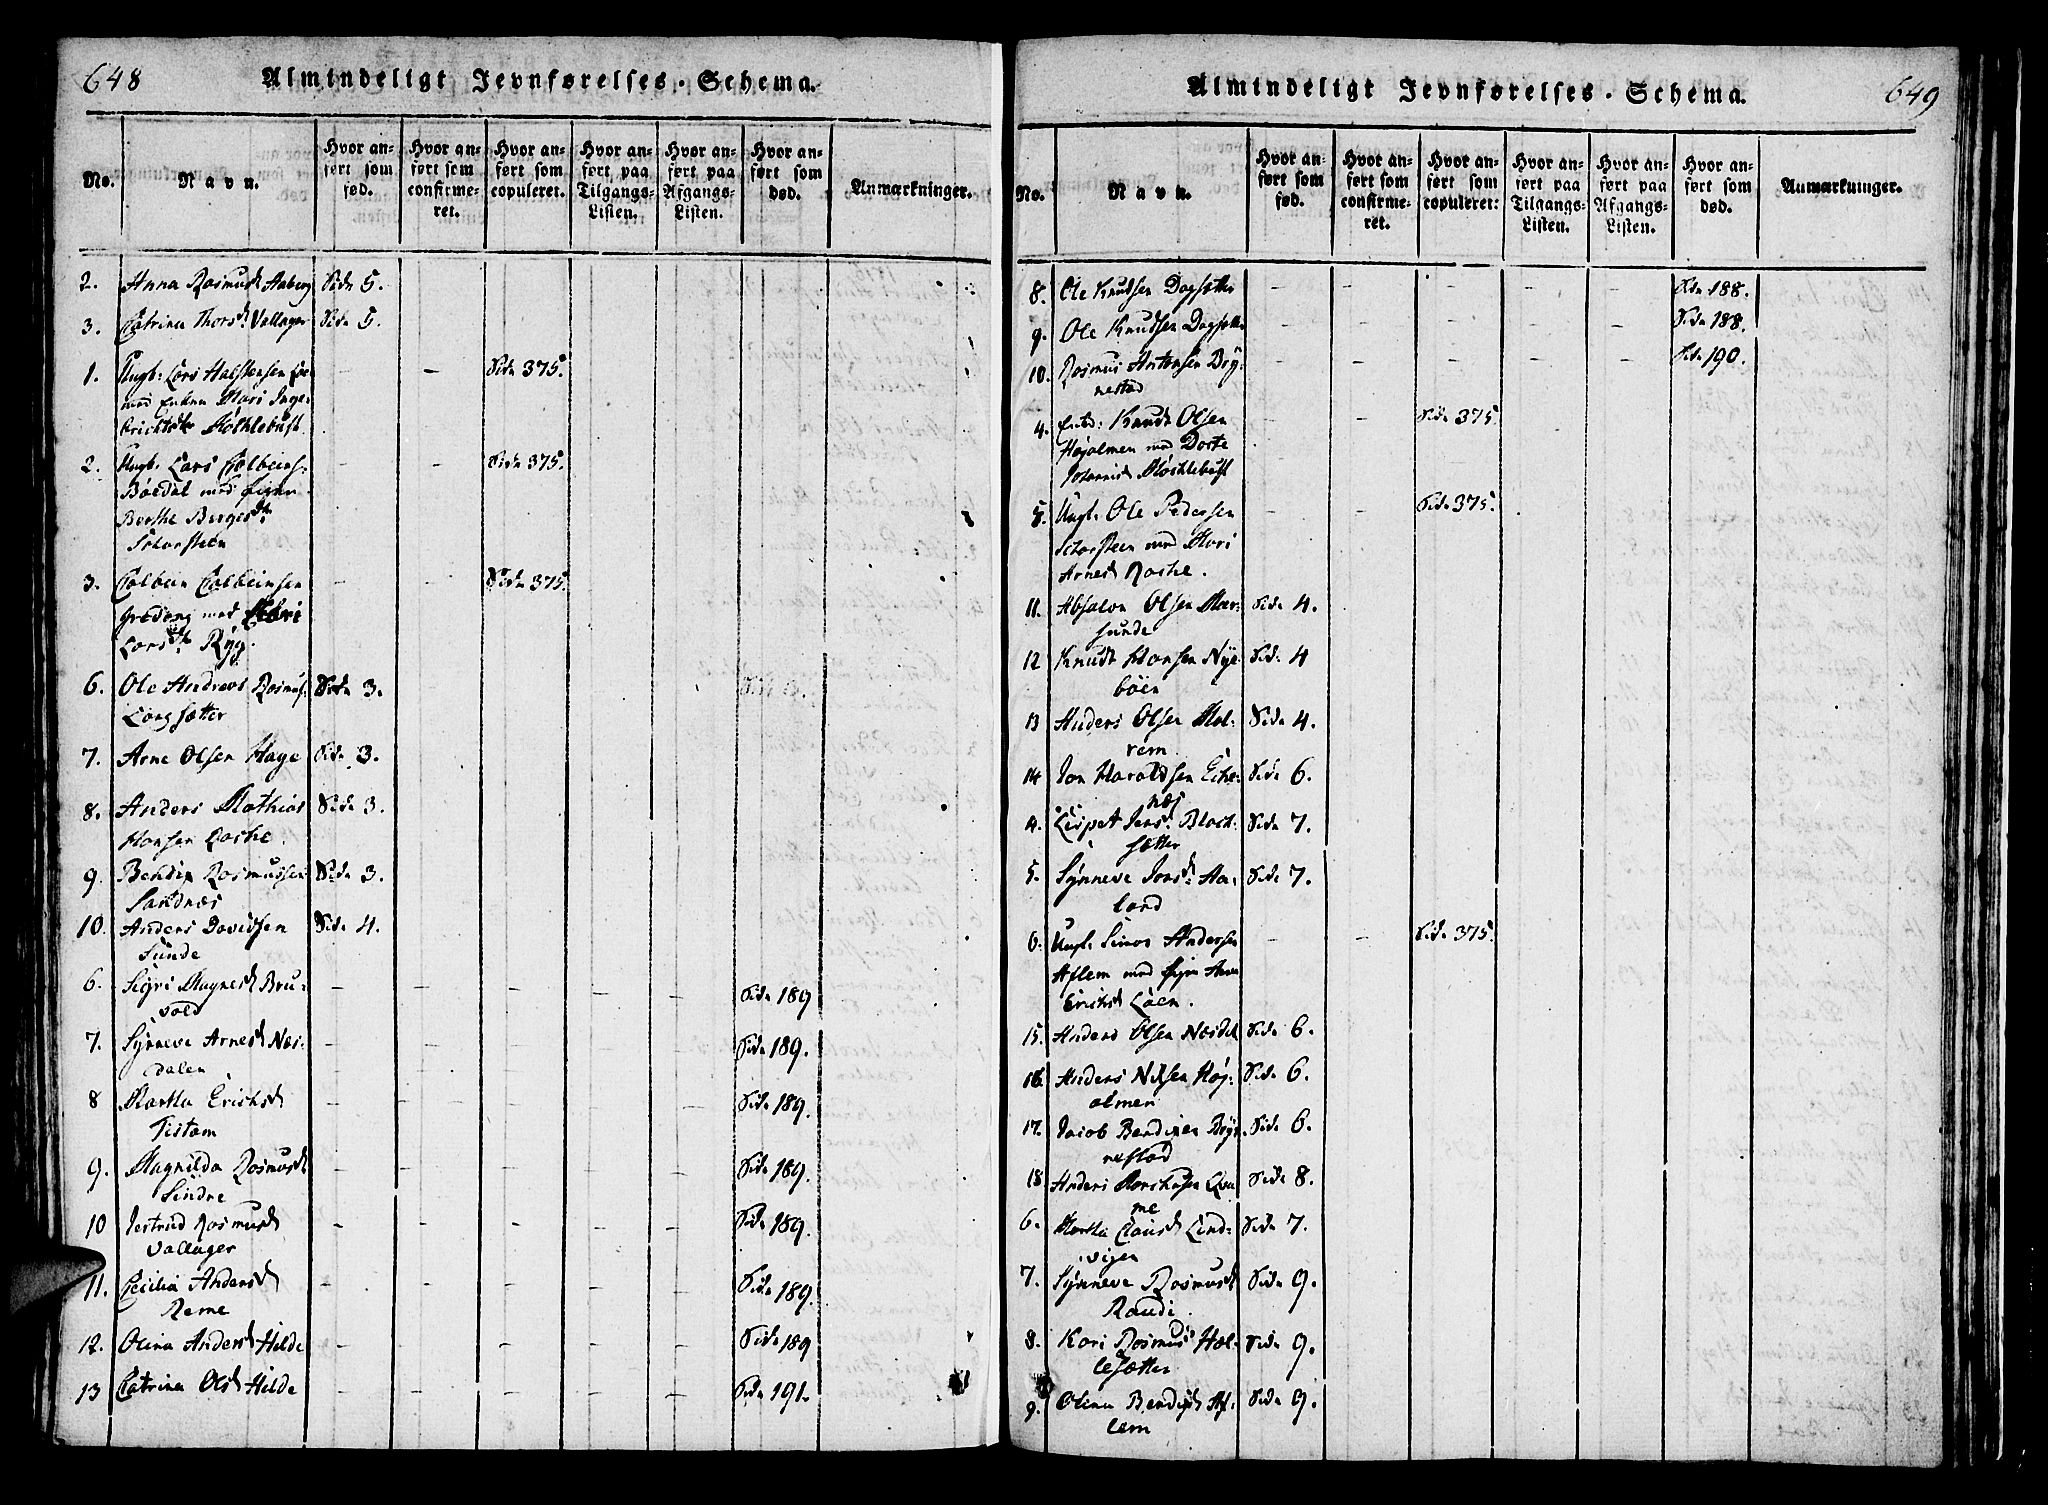 648
Almindeligt Jevnførelses-Schema.
No.
Navn.
Hvor anført som fød.
Hvor anført som confirmeret.
Hvor anført som copuleret.
Hvor anført paa Tilgangs-Listen.
Hvor anført paa Afgangs-Listen.
Hvor anført som død.
Anmærkninger.
2. Anna Rasmusd Aaberg Side 5.
3. Catrina Thorsd: Vallager Side 5.
1. Ungk: Lars Halstensen - Side 375.
med Enken Mari Inge-
brichtsdtr Møklebust
2. Ungk. Lars Colbeins. - - Side 375.
Bøedal med Pigen
Berthe Bergesdtr
Schorsteen
3. Colbein Colbeinsen - - Side 375.
Grodaas med Mari
Larsdtr Ryg.
6. Ole Andreas Rasmus. Side 3.
Langsætter
7. Arne Olsen Hage Side 3.
8. Anders Mathias Side 3.
Hansen Loche.
9. Bendix Rasmussen Side 3.
Sandnæs
10. Anders Davidsen Side 4.
Sunde
6. Sigri Magnesd Bru- - - - - - Side 189
vold
7. Synneve Arnesd Næs- - - - - - Side 189.
dalen
8 Martha Erichsd - - - - - Side 189.
Tistam
9. Magnilda Rasmusd - - - - - Side 189.
Sindre
10 Jertrud Rasmusd - - - - - Side 189.
Vallager
11. Cecilia Andersd - - - - - Side 189.
Reme
12. Olina Andersd Hilde - - - - - Side 189
13 Catrina Olsd Hilde - - - - - Side 191.
Almindeligt Jevnførelses-Schema.
649
No.
Navn.
Hvor anført som fød.
Hvor anført som confirmeret.
Hvor anført som copuleret:
Hvor anført paa Tilgangs-Listen.
Hvor anført paa Afgangs-Listen.
Hvor anført som død.
Anmærkninger.
8. Ole Knudsen Dagsætter - - - - - Side 188.
9. Ole Knudsen Dagsætter - - - - - Side 188.
10. Rasmus Antonsen Bry- - - - - - Side 190.
nestad
4. Enkd: Knudt Olsen - - Side 375
Højolmen med Dorte
Johannisd Møchlebust
5. Ungk: Ole Pedersen - - Side 375.
Schorsteen med Mari
Arnesd Rache.
11. Absalon Olsen Mar- Side 4.
sunde
12 Knudt Hansen Nye- Side 4
bøen
13 Anders Olsen Mel- Side 4.
rem
14 Jon Haraldsen Eche- Side 6.
næs
4. Lispet Jensd: Bloch- Side 7.
sætter
5. Synneve Jonsd: Aa- Side 7.
land
6. Ungk: Simon Andersen - - Side 375.
Aflem med Pigen Anna
Erichsd Loen.
15. Anders Olsen Næsdal Side 6.
16. Anders Nilsen Høj- Side 6.
olmen
17. Jacob Bendixen Bry- Side 6.
nestad
18 Anders Side 8.
me
6. Martha Clausd Lind- Side 7.
vigen
7. Synneve Rasmusd Side 9.
Raudi.
8. Kari Rasmusd Hæl- Side 9.
lesætter
9. Olina Bendixd Af- Side 9.
lem